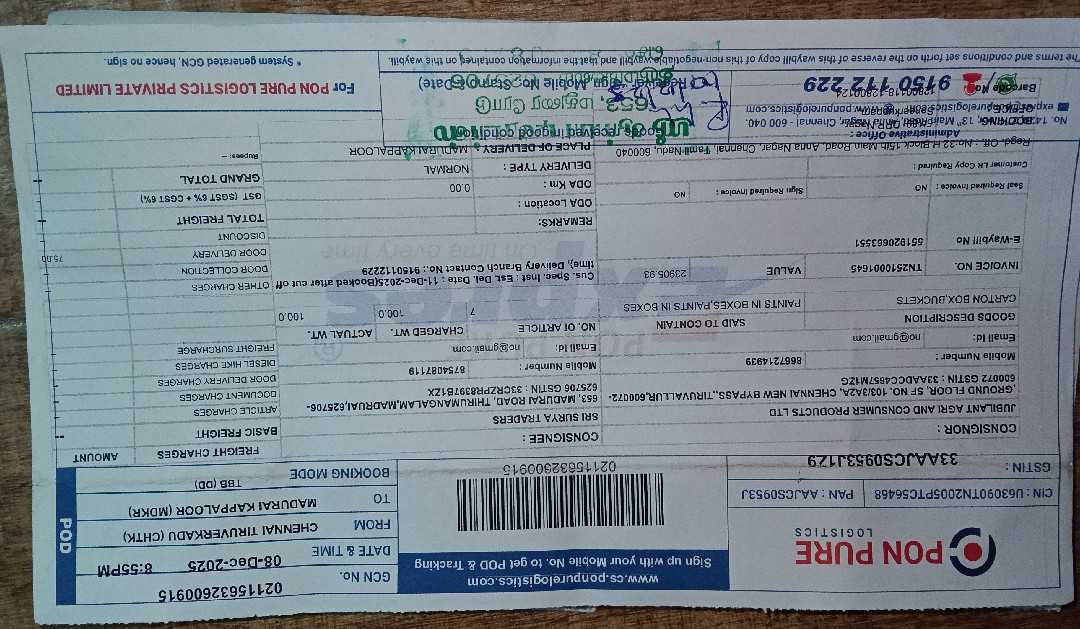 PON PURE
LOGISTICS
www.cs.ponpurelogistics.com
Sign up with your Mobile No. to get POD & Tracking
GCN No. 02115632600915
DATE & TIME 08-Dec-2025 8:55PM
FROM CHENNAI TIRUVERKADU (CHTK)
TO MADURAI KAPPALOOR (MDKR)
BOOKING MODE TBB (DD)
POD
CIN : U63090TN2005PTC56468 PAN : AAJCS0953J
GSTIN : 33AAJCS0953J1Z9
02115632600915
CONSIGNOR :
JUBILANT AGRI AND CONSUMER PRODUCTS LTD
,GROUND FLOOR, SF NO. 103/3A/2A, CHENNAI NEW BYPASS,,TIRUVALLUR,600072-
600072 GSTIN : 33AADCC4657M1ZG
Mobile Number : 8667214939
Email Id: no@gmail.com
CONSIGNEE :
SRI SURYA TRADERS
653, MADURAI ROAD, THIRUMANGALAM,MADRUAI,625706-
625706 GSTIN : 33CRZPR8397B1ZX
Mobile Number : 8754087119
Email Id: no@gmail.com
FREIGHT CHARGES AMOUNT
BASIC FREIGHT --
ARTICLE CHARGES
DOCUMENT CHARGES
DOOR DELIVERY CHARGES
DIESEL HIKE CHARGES
FREIGHT SURCHARGE
OTHER CHARGES
DOOR COLLECTION
DOOR DELIVERY 75.00
DISCOUNT
TOTAL FREIGHT
GST (SGST 6% + CGST 6%)
GRAND TOTAL
Rupees: --
GOODS DESCRIPTION SAID TO CONTAIN NO. Of ARTICLE CHARGED WT. ACTUAL WT.
CARTON BOX,BUCKETS PAINTS IN BOXES,PAINTS IN BOXES 7 100.0 100.0
INVOICE NO. TN2510001645 VALUE 23905.93
E-Waybill No 551920663551
Cus. Spec. Inst : Est. Del. Date : 11-Dec-2025(Booked after cut off
time), Delivery Branch Contact No.: 9150112229
REMARKS:
ODA Location :
ODA Km : 0.00
DELIVERY TYPE : NORMAL
PLACE OF DELIVERY : MADURAI KAPPALOOR
Seal Required Invoice : NO Sign Required Invoice : NO
Customer LR Copy Required :
Regd. Off. : No.32 H Block 15th Main Road, Anna Nagar, Chennai, Tamil Nadu, 600040
Administrative Office :
BOOKING
OFFICE
Barcode No
9150 112 229
Goods received in good condition
653, மதுரை ரோடு
For PON PURE LOGISTICS PRIVATE LIMITED
* System generated GCN, hence no sign.
The terms and conditions set forth on the reverse of this waybill copy of this non-negotiable waybill and that the information contained on this waybill.